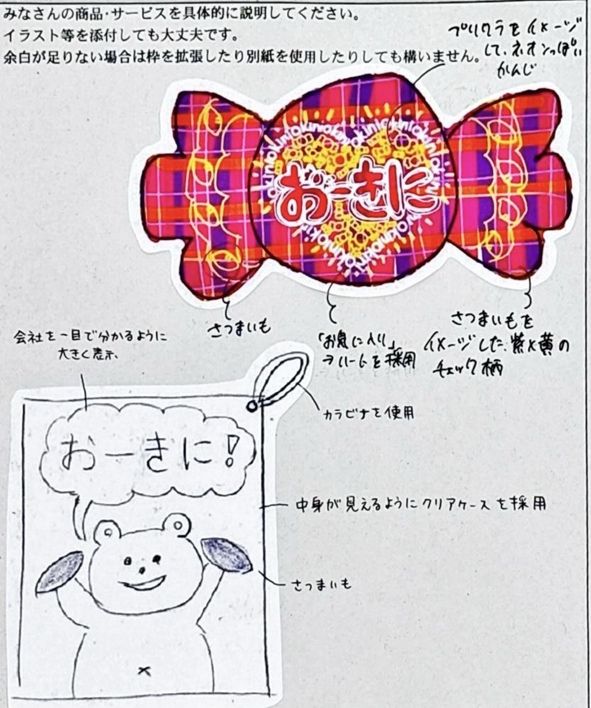 みなさんの商品・サービスを具体的に説明してください。
イラスト等を添付しても大丈夫です。
余白が足りない場合は枠を拡張したり別紙を使用したりしても構いません。
プリクラをイメージ
して、ネオンっぽい
かんじ
おーきに
さつまいも
「お気に入り」
→ハートを採用
さつまいもを
イメージした紫×黄の
チェック柄
会社を一目で分かるように
大きく表示
カラビナを使用
おーきに!
中身が見えるようにクリアケースを採用
さつまいも